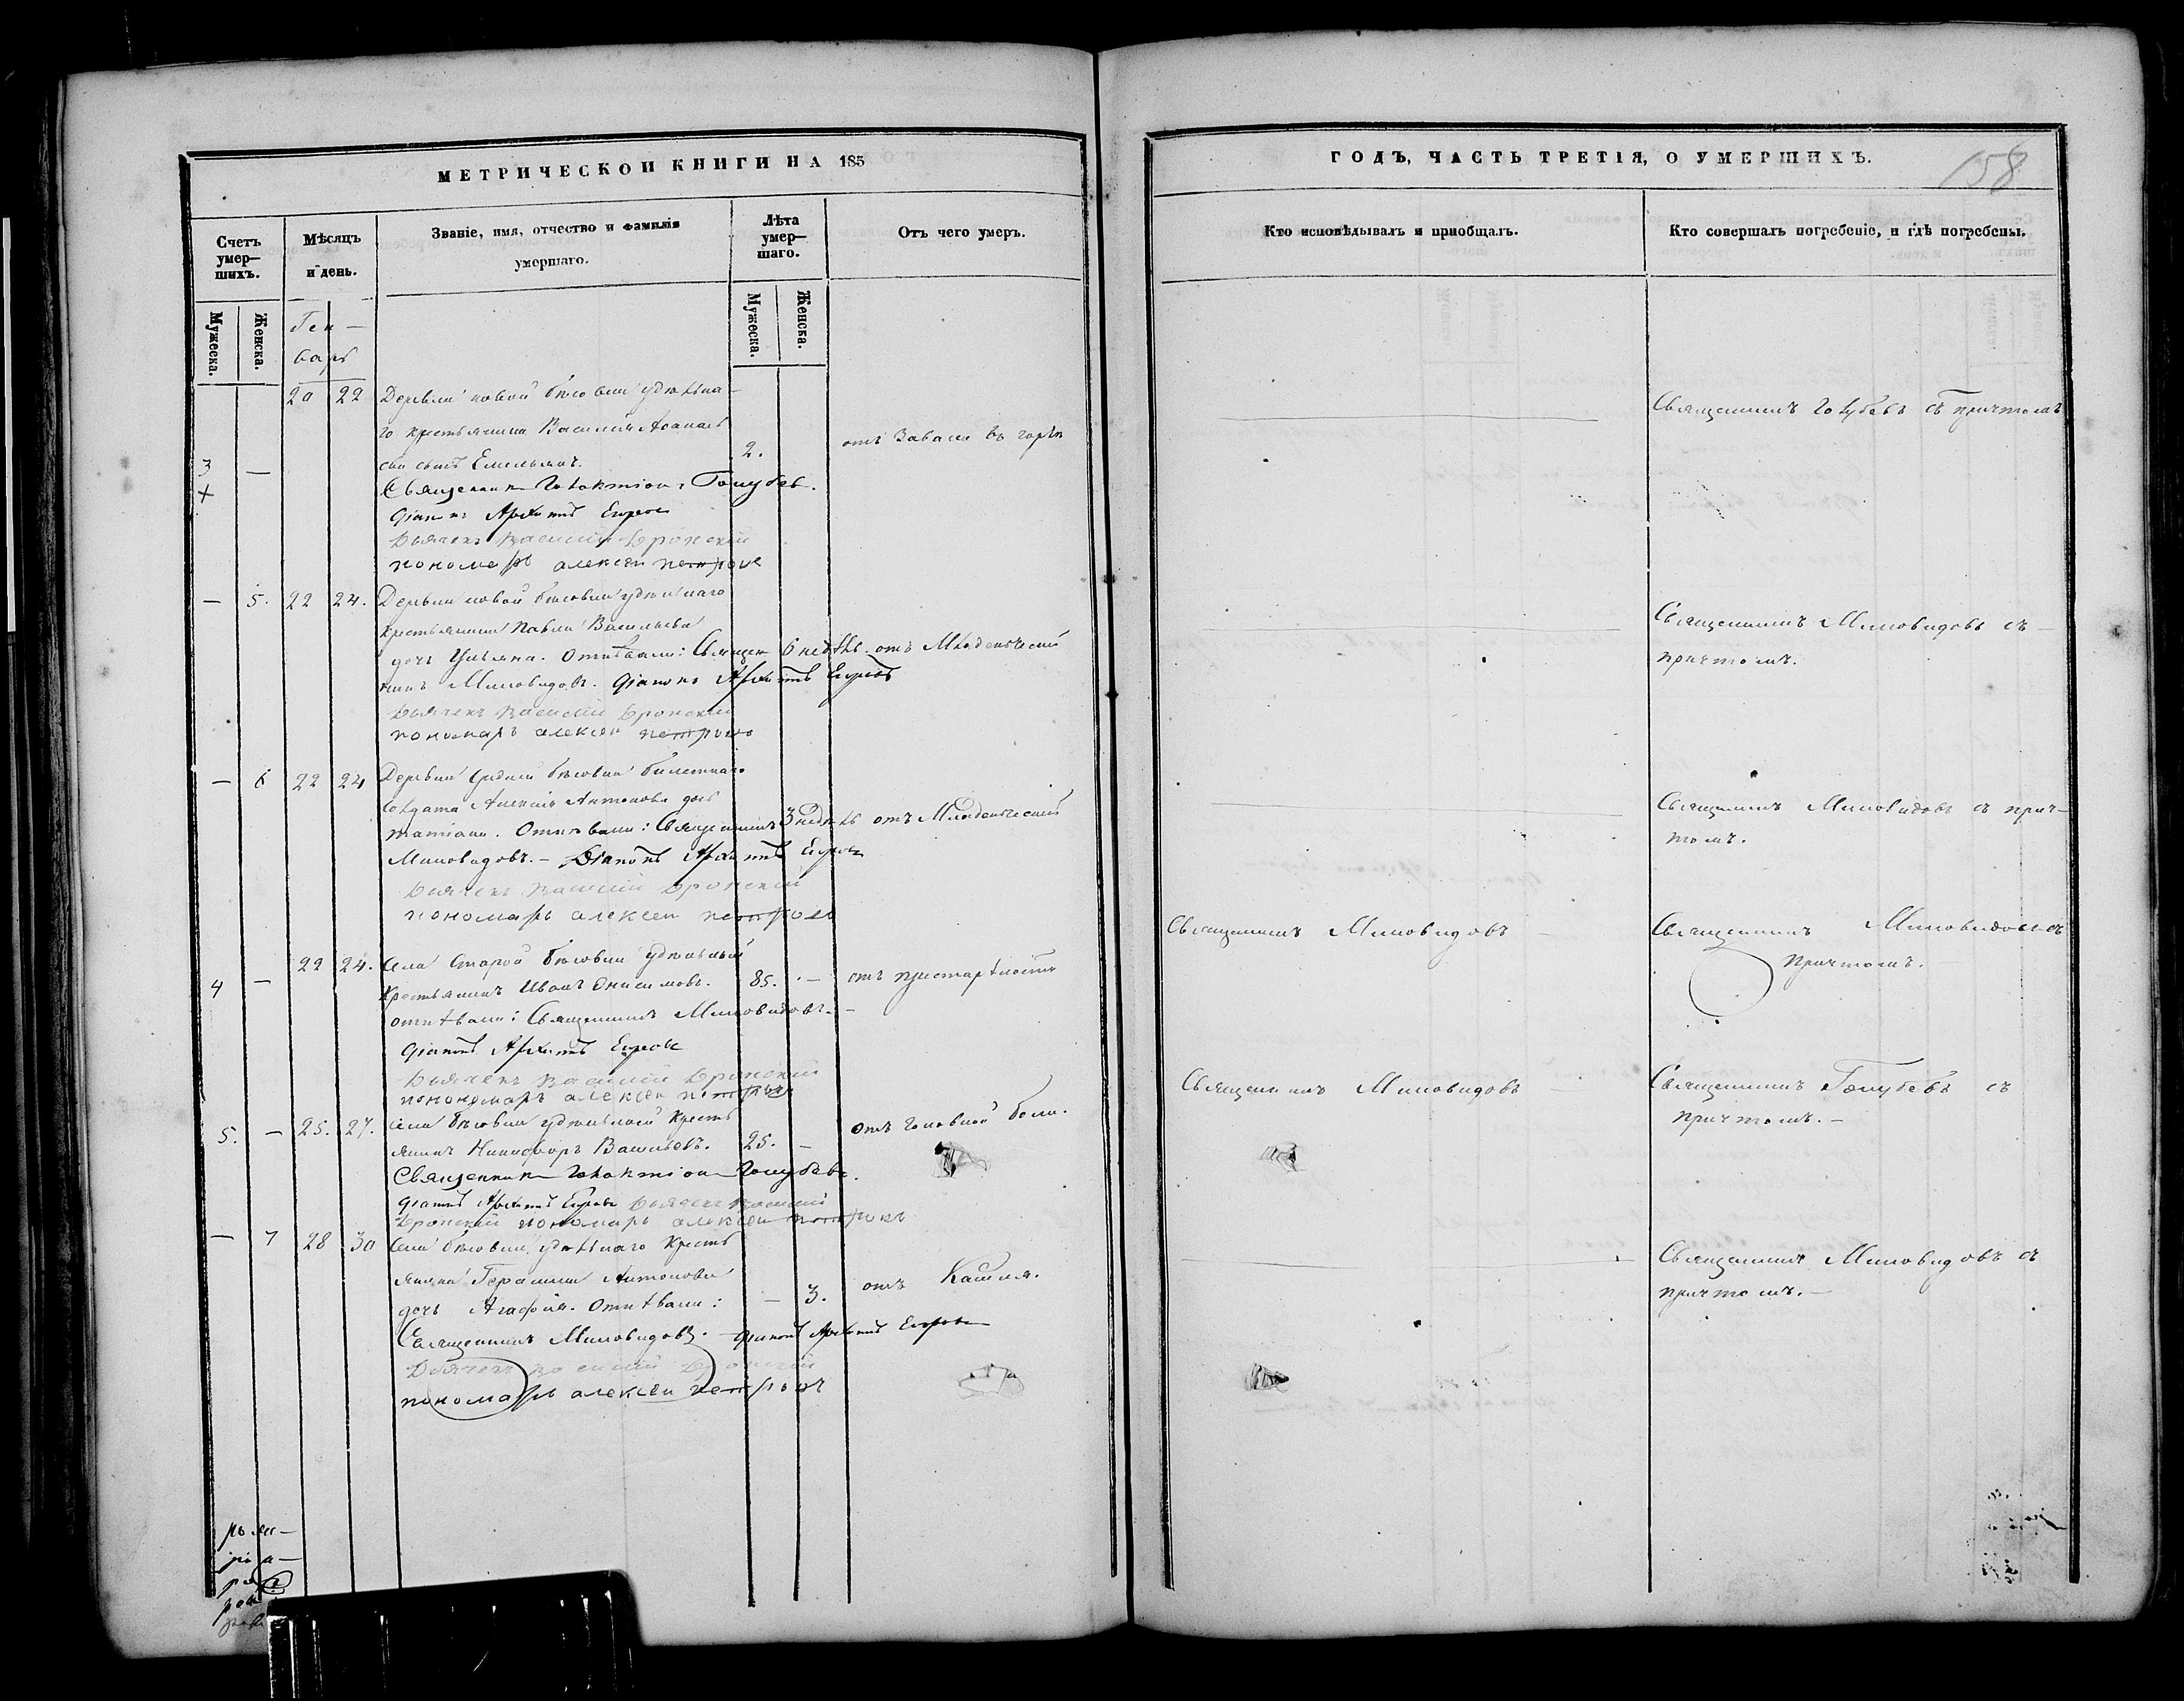 МЕТРИЧЕСКОЙ КНИГИ НА 185
Счетъ умер-шихъ.
Мѣсяцъ и день.
Званіе, имя, отчество и фамилія умершаго.
Лѣта умер-шаго.
Отъ чего умеръ.
Мужеска.
Женска.
Ген-
варь
Мужеска.
Женска.
20 22 Деревни новой бѣсовки удѣльна-
го крестьянина Василія Аѳанась
3 — сынъ Емельянъ. 2. отъ завали въ горлѣ
Священникъ Голубевъ.
Діаконъ Архипъ Егоровъ
Дьячекъ Василий Бронский
пономарь алексей петровъ
— 5. 22 24. Деревни новой бѣсовки удѣльнаго
крестьянина Павла Васильева
дочь Ульяна. Отпѣвали: Священ 6 недѣль. отъ Младенческой
никъ Миловидовъ. Діаконъ Архипъ Егоровъ
Дьячекъ Василий Бронский
пономарь алексей петровъ
— 6 22 24 Деревни бѣсовки билетнаго
солдата Алексія Антонова дочь
татіана. Отпѣвали: Священникъ 3 недѣль отъ Младенческой
Миловидовъ. — Діаконъ Архипъ Егоровъ
Дьячекъ Василий Бронский
пономарь алексей петровъ
22 24. Села Старой бѣсовки удѣльный
4 — Крестьянинъ Иванъ Онисимовъ. 85. — отъ престарѣлости
отпѣвали: Священникъ Миловидовъ. —
Діаконъ Архипъ Егоровъ
Дьячекъ Василий Бронский
пономарь алексей петровъ
5. — 25. 27. Села бѣсовки удѣльной Кресть
янинъ Никифоръ Васильевъ. 25. — отъ головной боли.
Священникъ Голубевъ.
діаконъ Архипъ Егоровъ Дьячекъ Василий
Бронский пономарь алексей петровъ
— 7 28 30 Села бѣсовки удѣльнаго Кресть
янина Герасима Антонова
дочь Агафія. Отпѣвали: — 3. отъ Кашля.
Священникъ Миловидовъ. — діаконъ Архипъ Егоровъ
Дьячекъ Василий Бронский
пономарь алексей петровъ
ГОДЪ, ЧАСТЬ ТРЕТІЯ, О УМЕРШИХЪ.
158
Кто исповѣдывалъ и пріобщалъ.
Кто совершалъ погребеніе, и гдѣ погребены.
Священникъ Голубевъ съ причтомъ
Священникъ Миловидовъ съ
причтомъ.
Священникъ Миловидовъ съ прич-
томъ.
Священникъ Миловидовъ — Священникъ Миловидовъ съ
Причтомъ. —
Священникъ Миловидовъ — Священникъ Голубевъ съ
причтомъ. —
Священникъ Миловидовъ съ
причтомъ. —